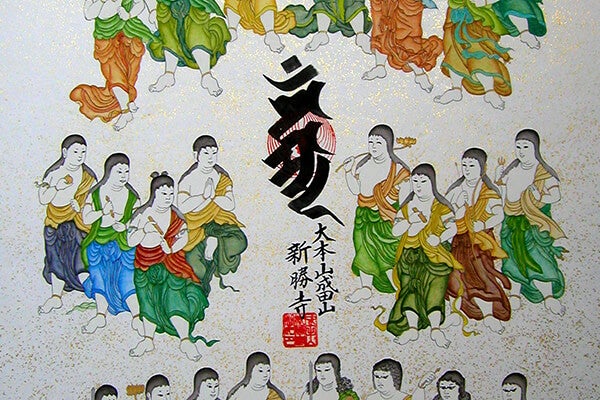 大本山成田山
新勝寺